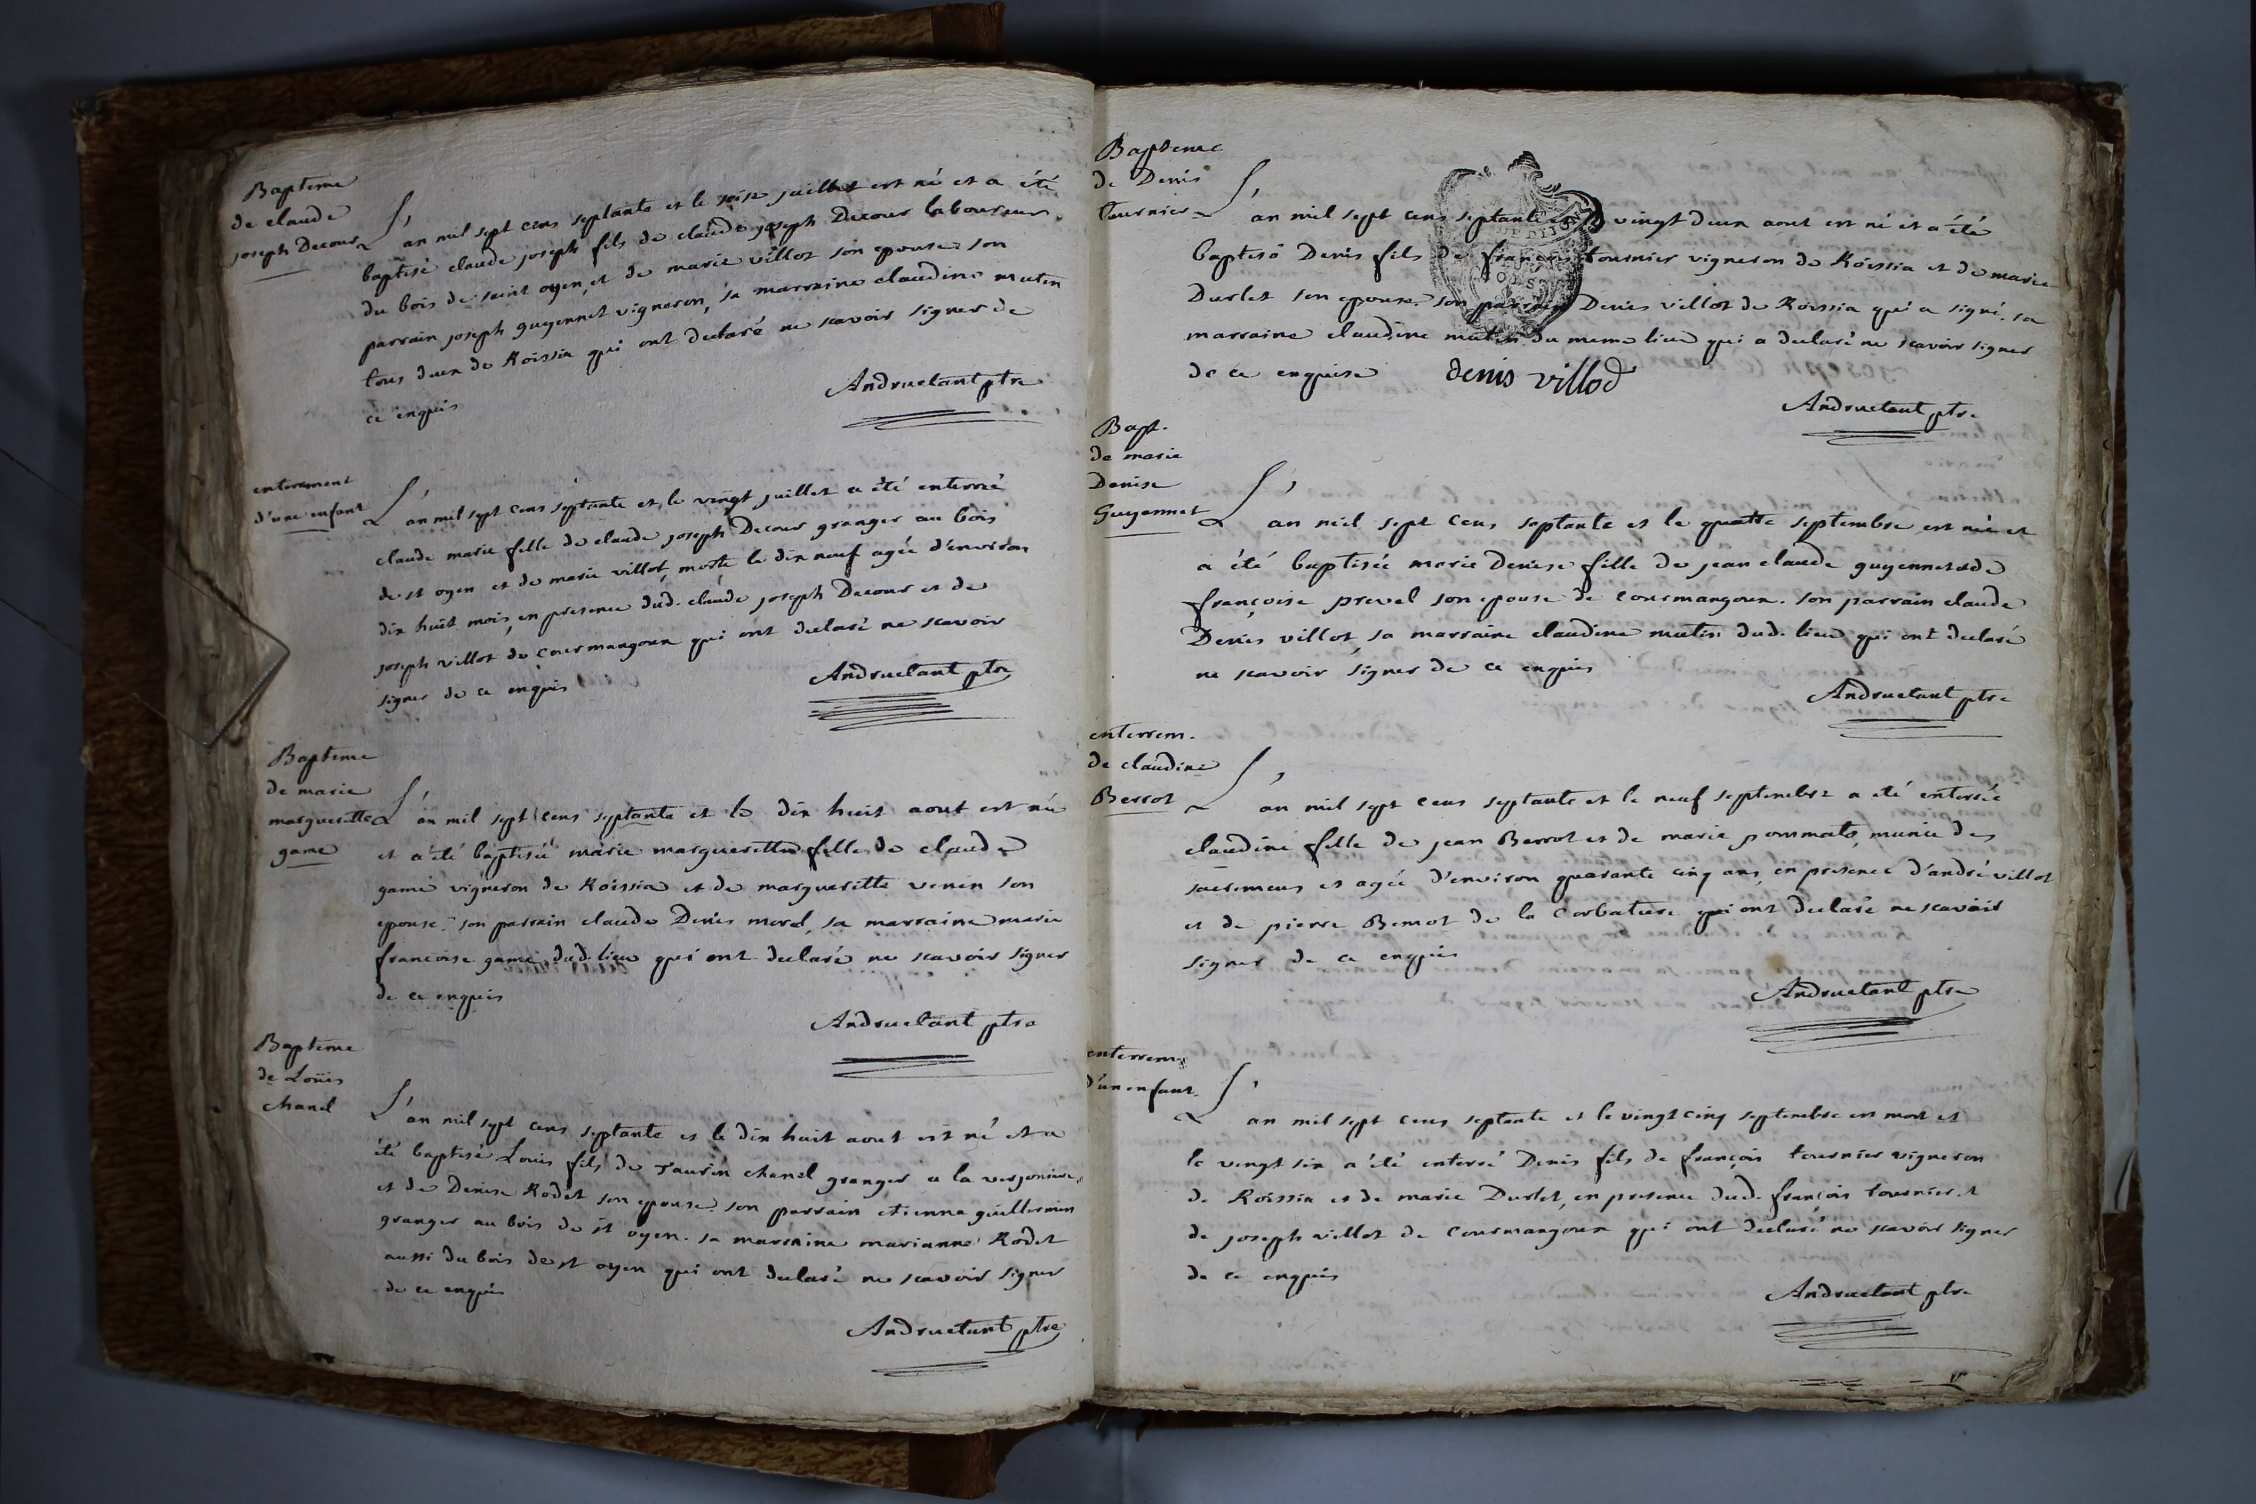 Bapteme
de claude
joseph Decour
L'an mil sept cens septante et le seize juillet est né et a été
baptisé claude joseph fils de claude joseph Decour laboureur
du bois de saint oyen, et de marie villot son epouse son
parrain joseph guyennet vigneron, sa marraine claudine mutin
tous deux de Roissia qui ont declaré ne scavoir signer de
ce enquis
Andruetant ptre
enterrement
d'une enfant
L'an mil sept cens septante et le vingt juillet a été enterrée
claude marie fille de claude joseph Decour granger au bois
de st oyen et de marie villot, morte le dix neuf agée d'environ
dix huit mois, en presence dud. claude joseph Decour et de
joseph villot de Courmangoux qui ont declaré ne scavoir
signer de ce enquis
Andruetant ptre
Bapteme
de marie
margueritte
game
L'an mil sept cens septante et le dix huit aout est née
et a été baptisée marie margueritte fille de claude
game vigneron de Roissia et de margueritte venin son
epouse. son parrain claude Denis morel, sa marraine marie
francoise game dud. lieu qui ont declaré ne scavoir signer
de ce enquis
Andruetant ptre
Bapteme
de Loüis
chanel
L'an mil sept cens septante et le dix huit aout est né et a
été baptisé Louis fils de Taurin chanel granger a la verjonniere,
et de Denise Rodet son epouse. son parrain etienne guillermin
granger au bois de st oyen. sa marraine marianne Rodet
aussi du bois de st oyen qui ont declaré ne scavoir signer
de ce enquis
Andruetant ptre
Bapteme
de Denis
tournier
L'an mil sept cens septante et le vingt deux aout est né et a été
baptisé Denis fils de françois tournier vigneron de Roissia et de marie
Durlet son epouse. son parrain Denis villot de Roissia qui a signé. sa
marraine claudine mutin du meme lieu qui a declaré ne scavoir signer
de ce enquise
denis villod
Andruetant ptre
Bapt.
de marie
Denise
Guyennet
L'an mil sept cens septante et le quatre septembre est née et
a été baptisée marie Denise fille de jean claude guyennet et de
françoise prevel son epouse de Courmangoux. son parrain claude
Denis villot, sa marraine claudine mutin dud. lieu qui ont declaré
ne scavoir signer de ce enquis
Andruetant ptre
enterrem.
de claudine
Berrot
L'an mil sept cens septante et le neuf septembre a été enterrée
claudine fille de jean Berrot et de marie pommate, munie des
sacremens et agée d'environ quarante cinq ans, en presence d'andré villot
et de pierre Bemot de la Corbatiere qui ont declaré ne scavoir
signer de ce enquis
Andruetant ptre
enterrem.
d'un enfant.
L'an mil sept cens septante et le vingt cinq septembre est mort et
le vingt six a été enterré Denis fils de françois tournier vigneron
de Roissia et de marie Durlet, en presence dud. françois tournier et
de joseph villot de Courmangoux qui ont declaré ne scavoir signer
de ce enquis
Andruetant ptre